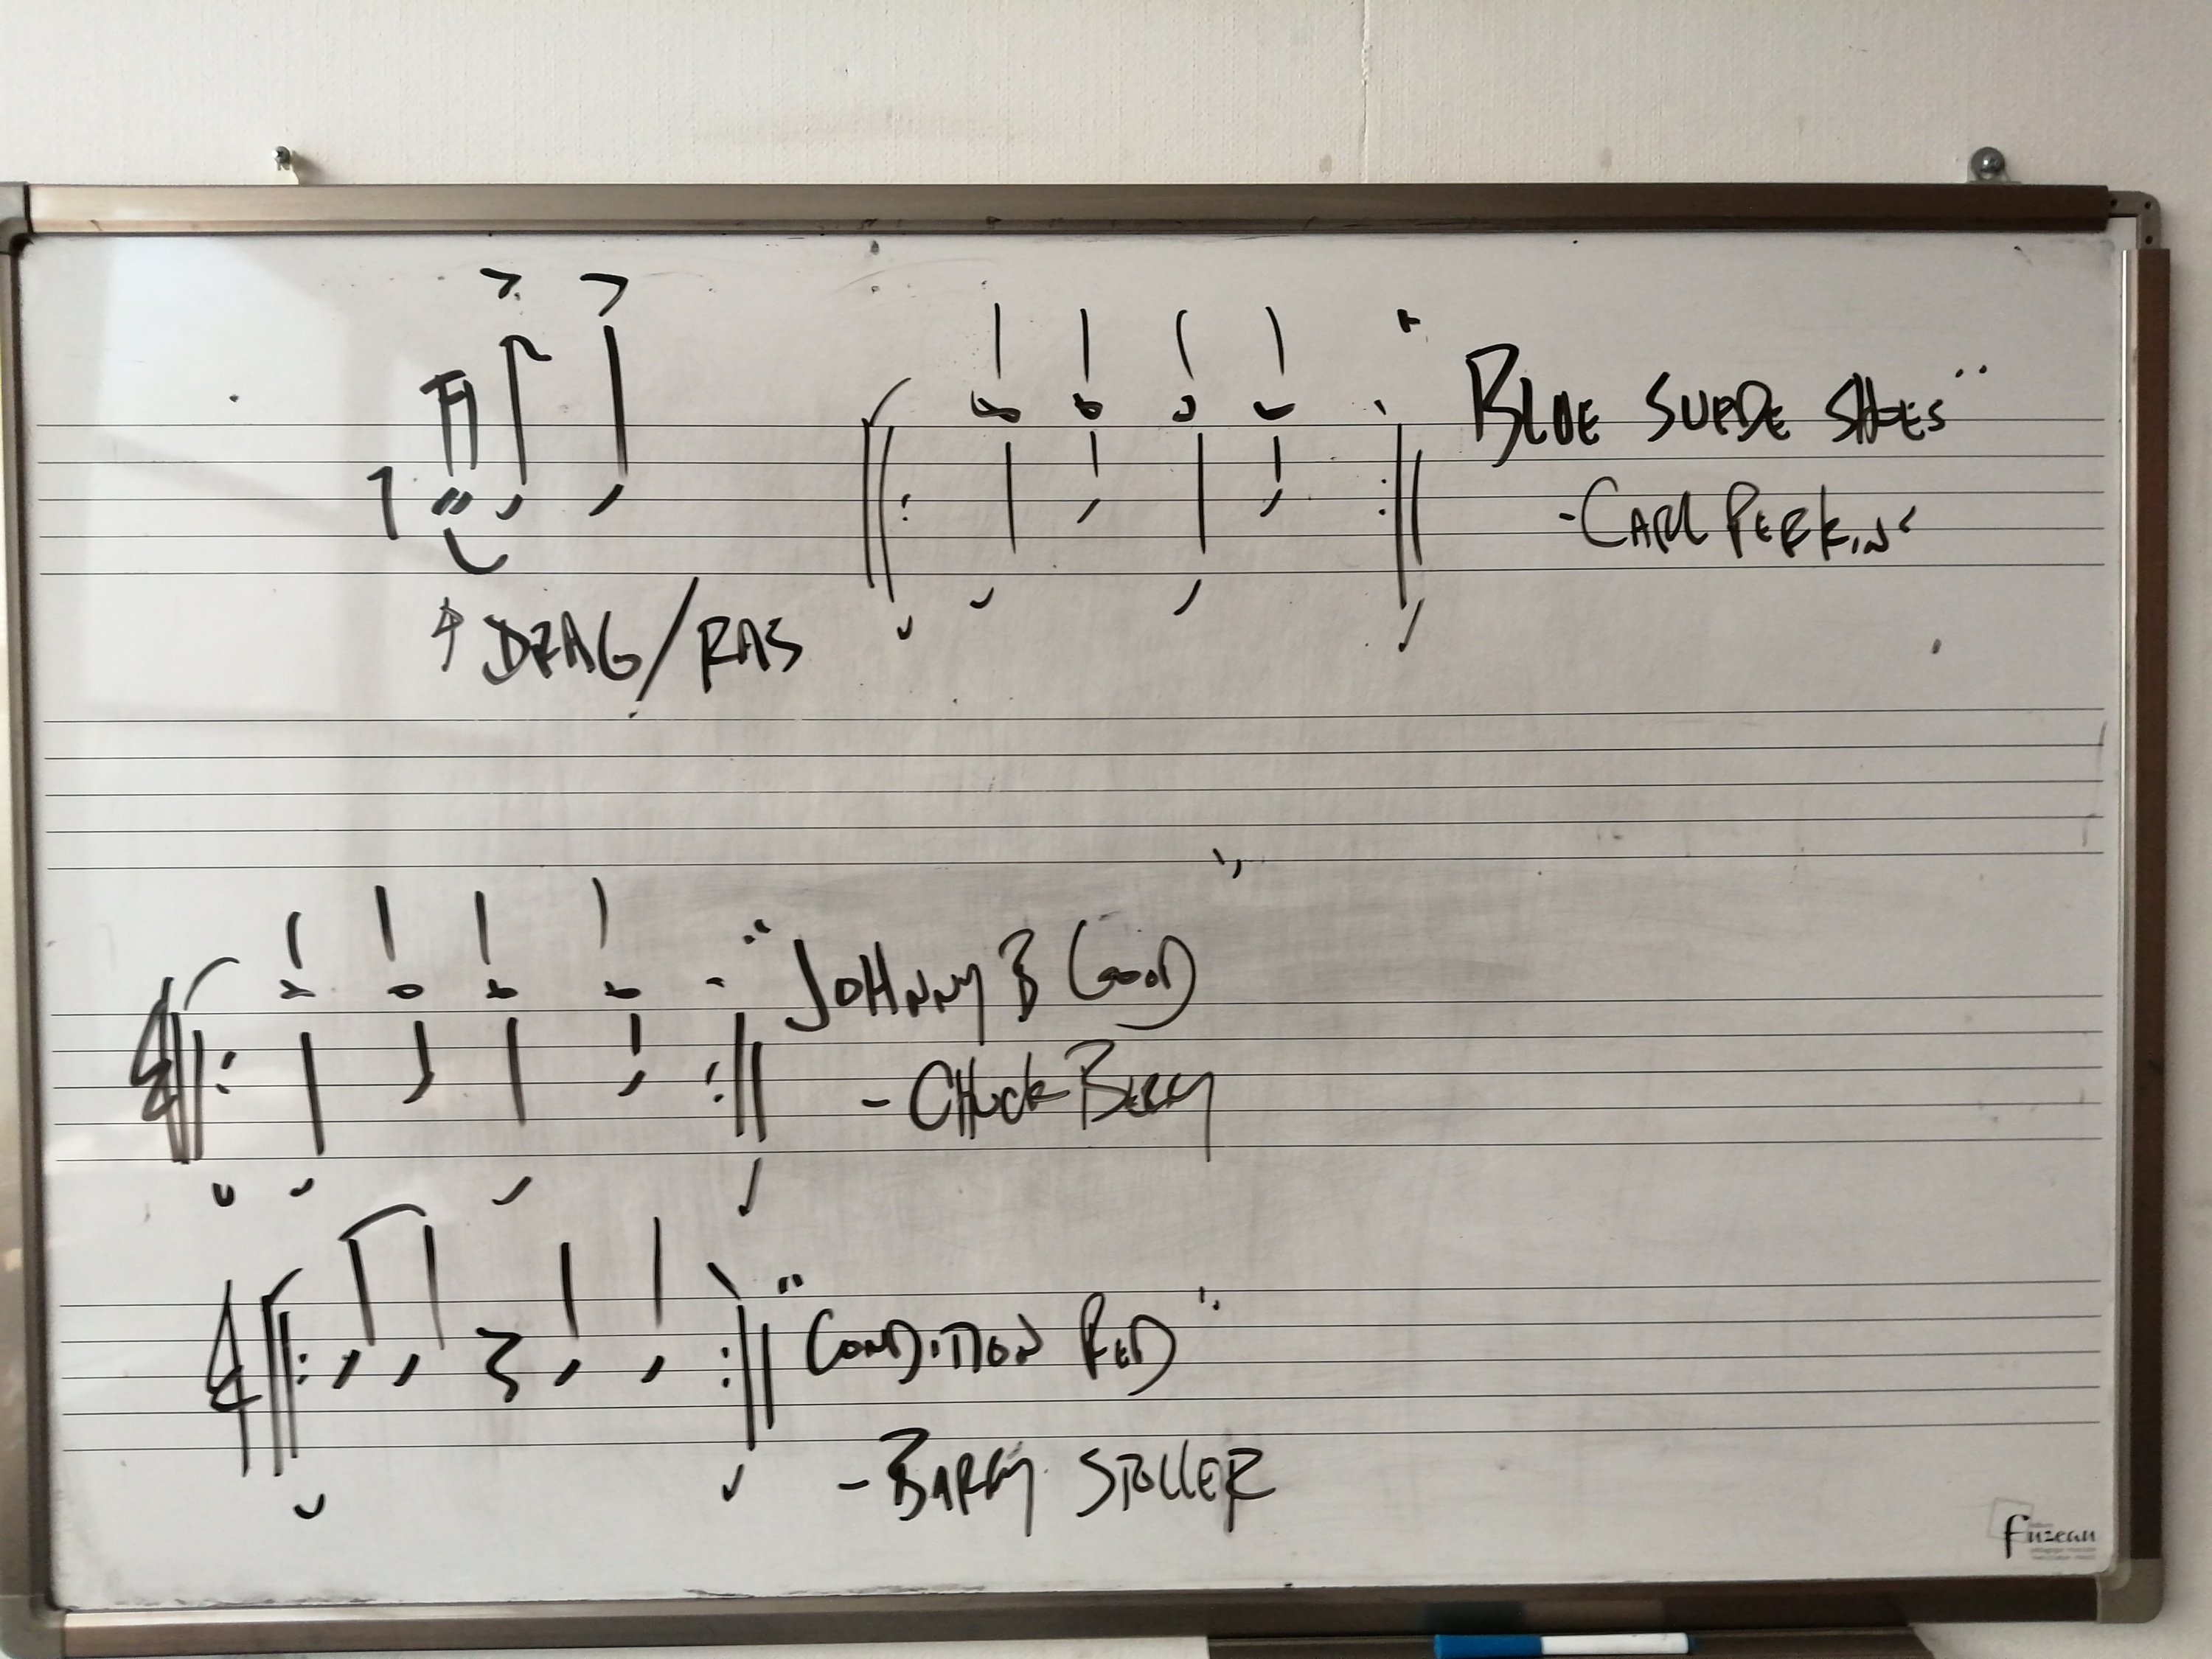 "BLUE SUEDE SHOES"
-CARL PERKINS
DRAG/RAS
"JOHNNY B GOOD"
-CHUCK BERRY
"CONDITION RED"
-BARRY STOLLER
Fuzeau